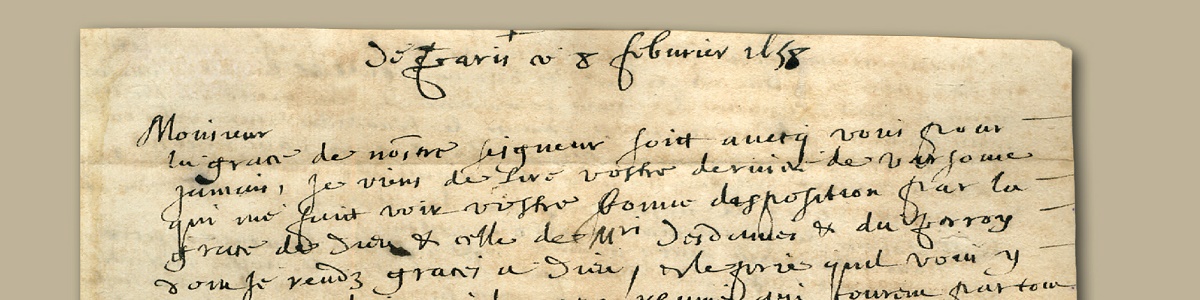 de Paris ce 8 feburier 1658
Monsieur
la grace de nostre seigneur soict avecq vous pour
jamais, je viens de lire vostre derniere de Varsovie
qui me faict voir vostre bonne disposition par la
grace de Dieu & celle de Mrs Desdames & duperroy
dont je rendz graces a Dieu, & le prie quil vous y
qui courent partout